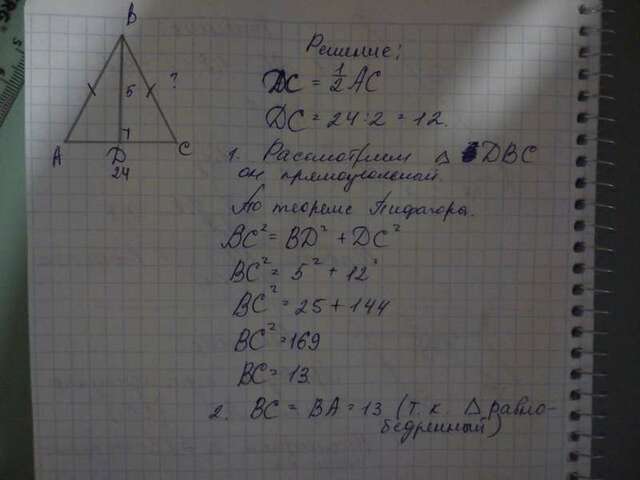 B
5
?
A
D
C
24
Решение:
DC = 1/2 AC
DC = 24 : 2 = 12.
1. Рассмотрим △ DBC
он прямоугольный.
По теореме Пифагора.
BC² = BD² + DC²
BC² = 5² + 12²
BC² = 25 + 144
BC² = 169
BC = 13.
2. BC = BA = 13 (т. к. △ равно-
бедренный)